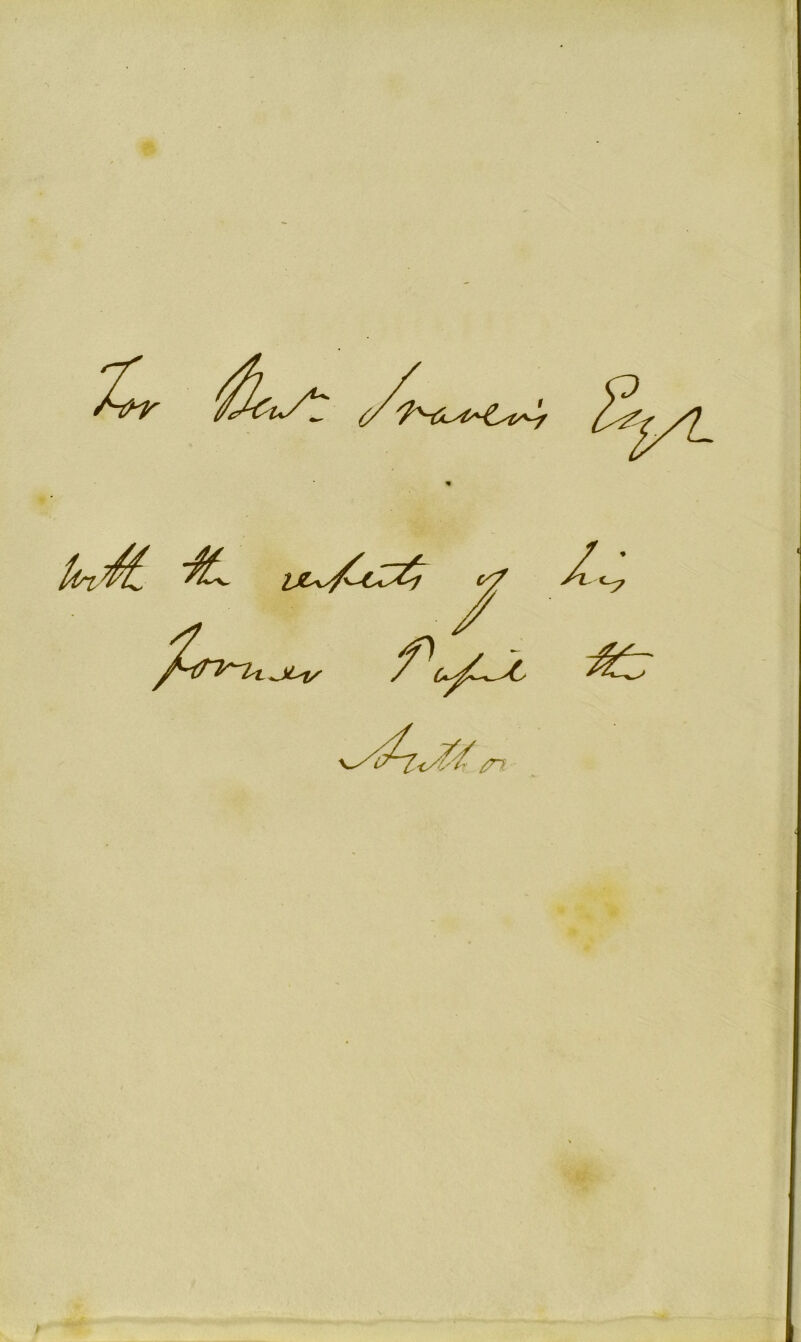 For Benjn. Travers Esqr
with the respects of his
former Pupil the
Author